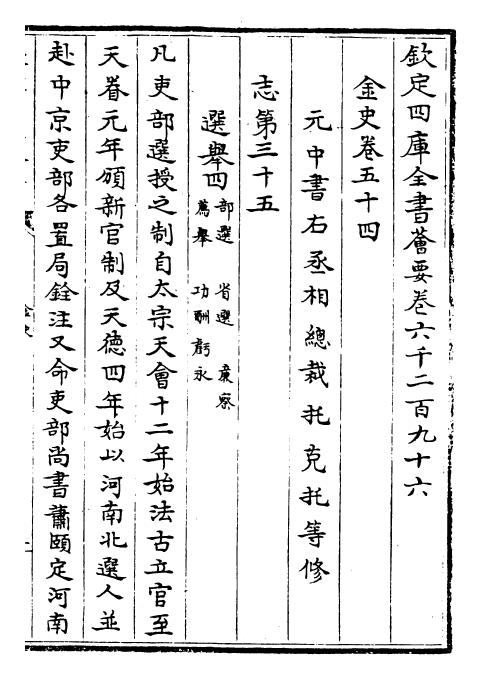 欽定四庫全書薈要卷六千二百九十六
金史卷五十四
元中書右丞相總裁托克托等修
志第三十五
選舉四 部選 省選 廉察 薦舉 功酬虧永
凡吏部選授之制自太宗天會十二年始法古立官至
天眷元年頒新官制及天德四年始以河南北選人並
赴中京吏部各置局銓注又命吏部尚書蕭頤定河南
金史